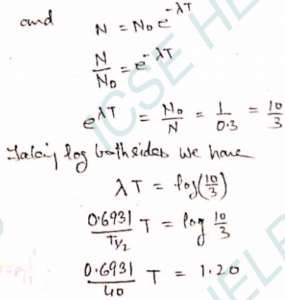 and N = N₀ e^{-λT}
N/N₀ = e^{-λT}
e^{λT} = N₀/N = 1/0.3 = 10/3
Taking log both sides we have
λT = log(10/3)
0.6931/T_{1/2} T = log 10/3
0.6931/40 T = 1.20
ICSE HEL
HELP